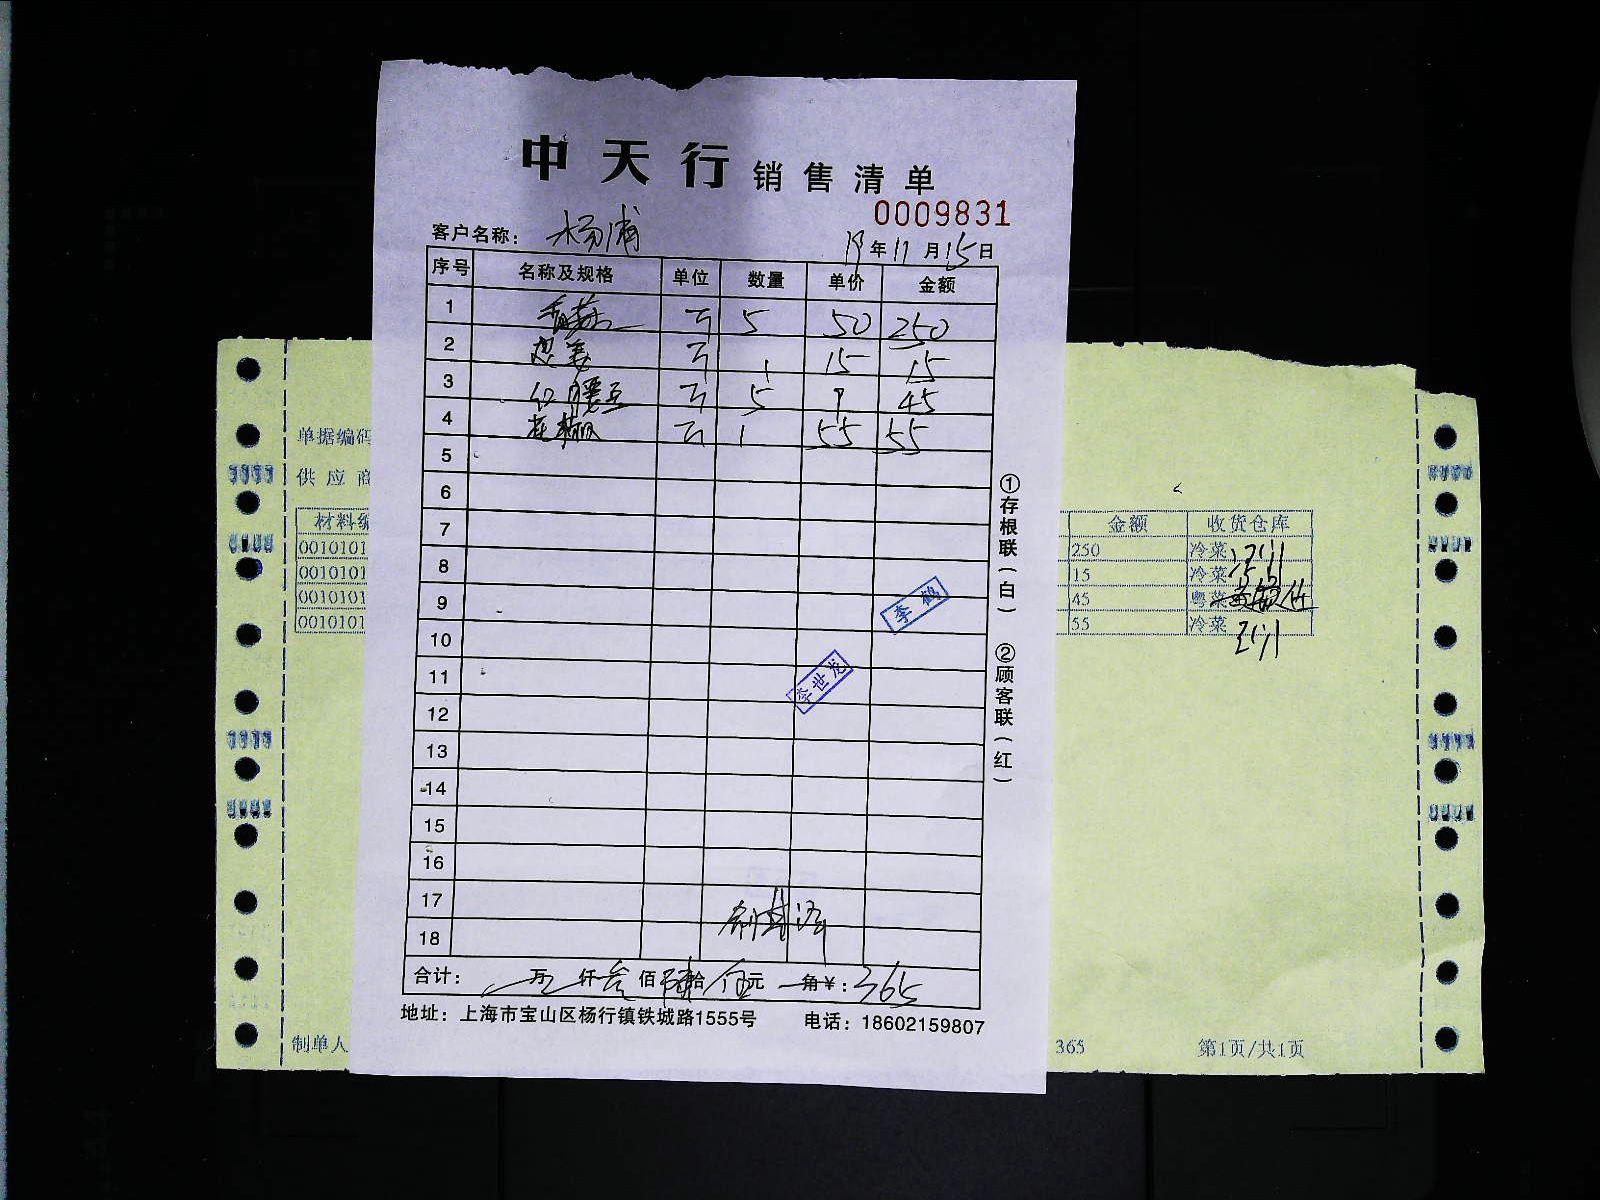 中天行 销售清单
0009831
客户名称： 杨浦
19 年 11 月 15 日
序号 名称及规格 单位 数量 单价 金额
1 5 50 250
2 1 15 15
3 5 9 45
4 1 55 55
5
6
7
8
9
10
11
12
13
14
15
16
17
18
李鹤
李世龙
合计： 万 仟 叁 佰 陆 拾 伍 元 角 ￥：365
地址：上海市宝山区杨行镇铁城路1555号 电话：18602159807
①存根联（白） ②顾客联（红）
单据编码
供应商
材料编 金额 收货仓库
0010101 250 冷菜
0010101 15 冷菜
0010101 45 粤菜
0010101 55 冷菜
制单人 365 第1页/共1页